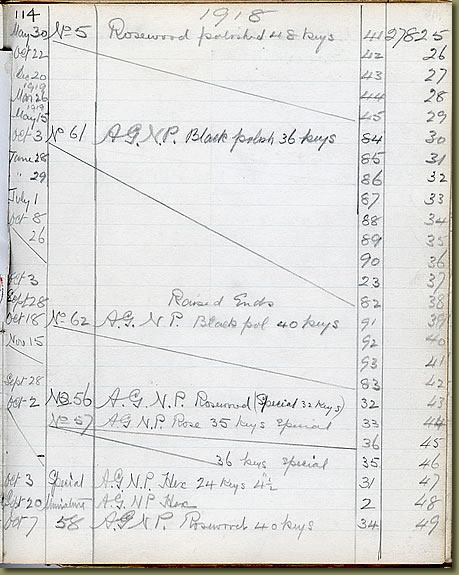 114 1918
May 30 No 5 Rosewood polished 48 keys 41 27825
Oct 22 42 26
20 43 27
1919
Mar 26 44 28
1919
May 15 45 29
Oct 3 No 61 A.G. N.P. Black polish 36 keys 84 30
June 28 85 31
" 29 86 32
July 1 87 33
Oct 8 88 34
26 89 35
90 36
Oct 3 23 37
Sept 28 Raised Ends 82 38
Oct 18 No 62 A.G. N.P. Black pol 40 keys 91 39
Nov 15 92 40
93 41
Sept 28 83 42
Oct 2 No 56 A.G. N.P. Rosewood (Special 32 keys) 32 43
No 57 AG N.P. Rose 35 keys Special 33 44
36 45
36 keys special 35 46
Oct 3 Special A.G N.P. Hex 24 keys 4½ 31 47
Sept 20 Miniature A.G. NP Hex 2 48
Oct 7 58 A.G N.P. Rosewood 40 keys 34 49